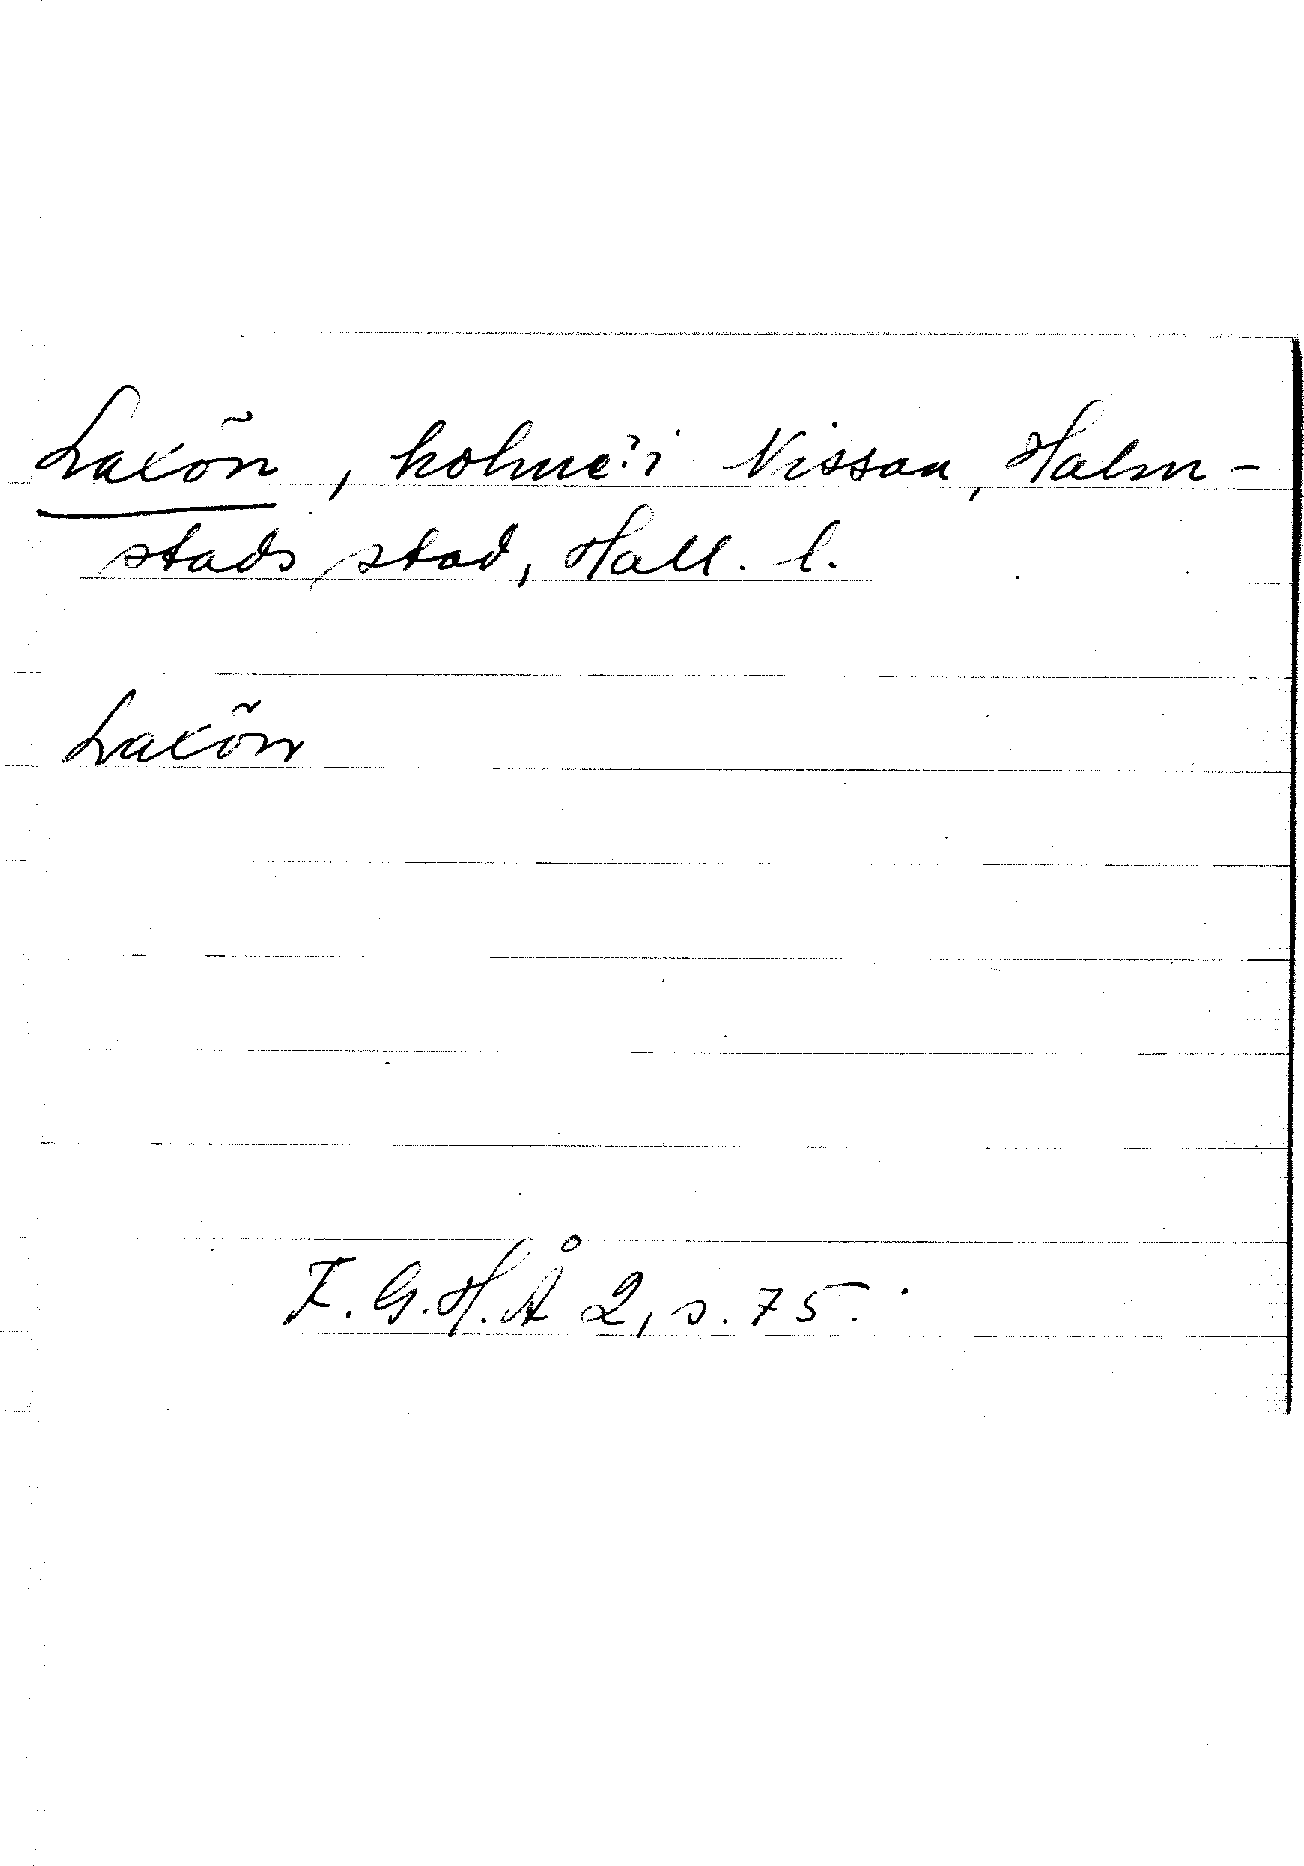 Laxön, holme? i Nissan, Halm-
stads stad, Hall. l.
Laxön
F.G.H.Å 2, s. 75.